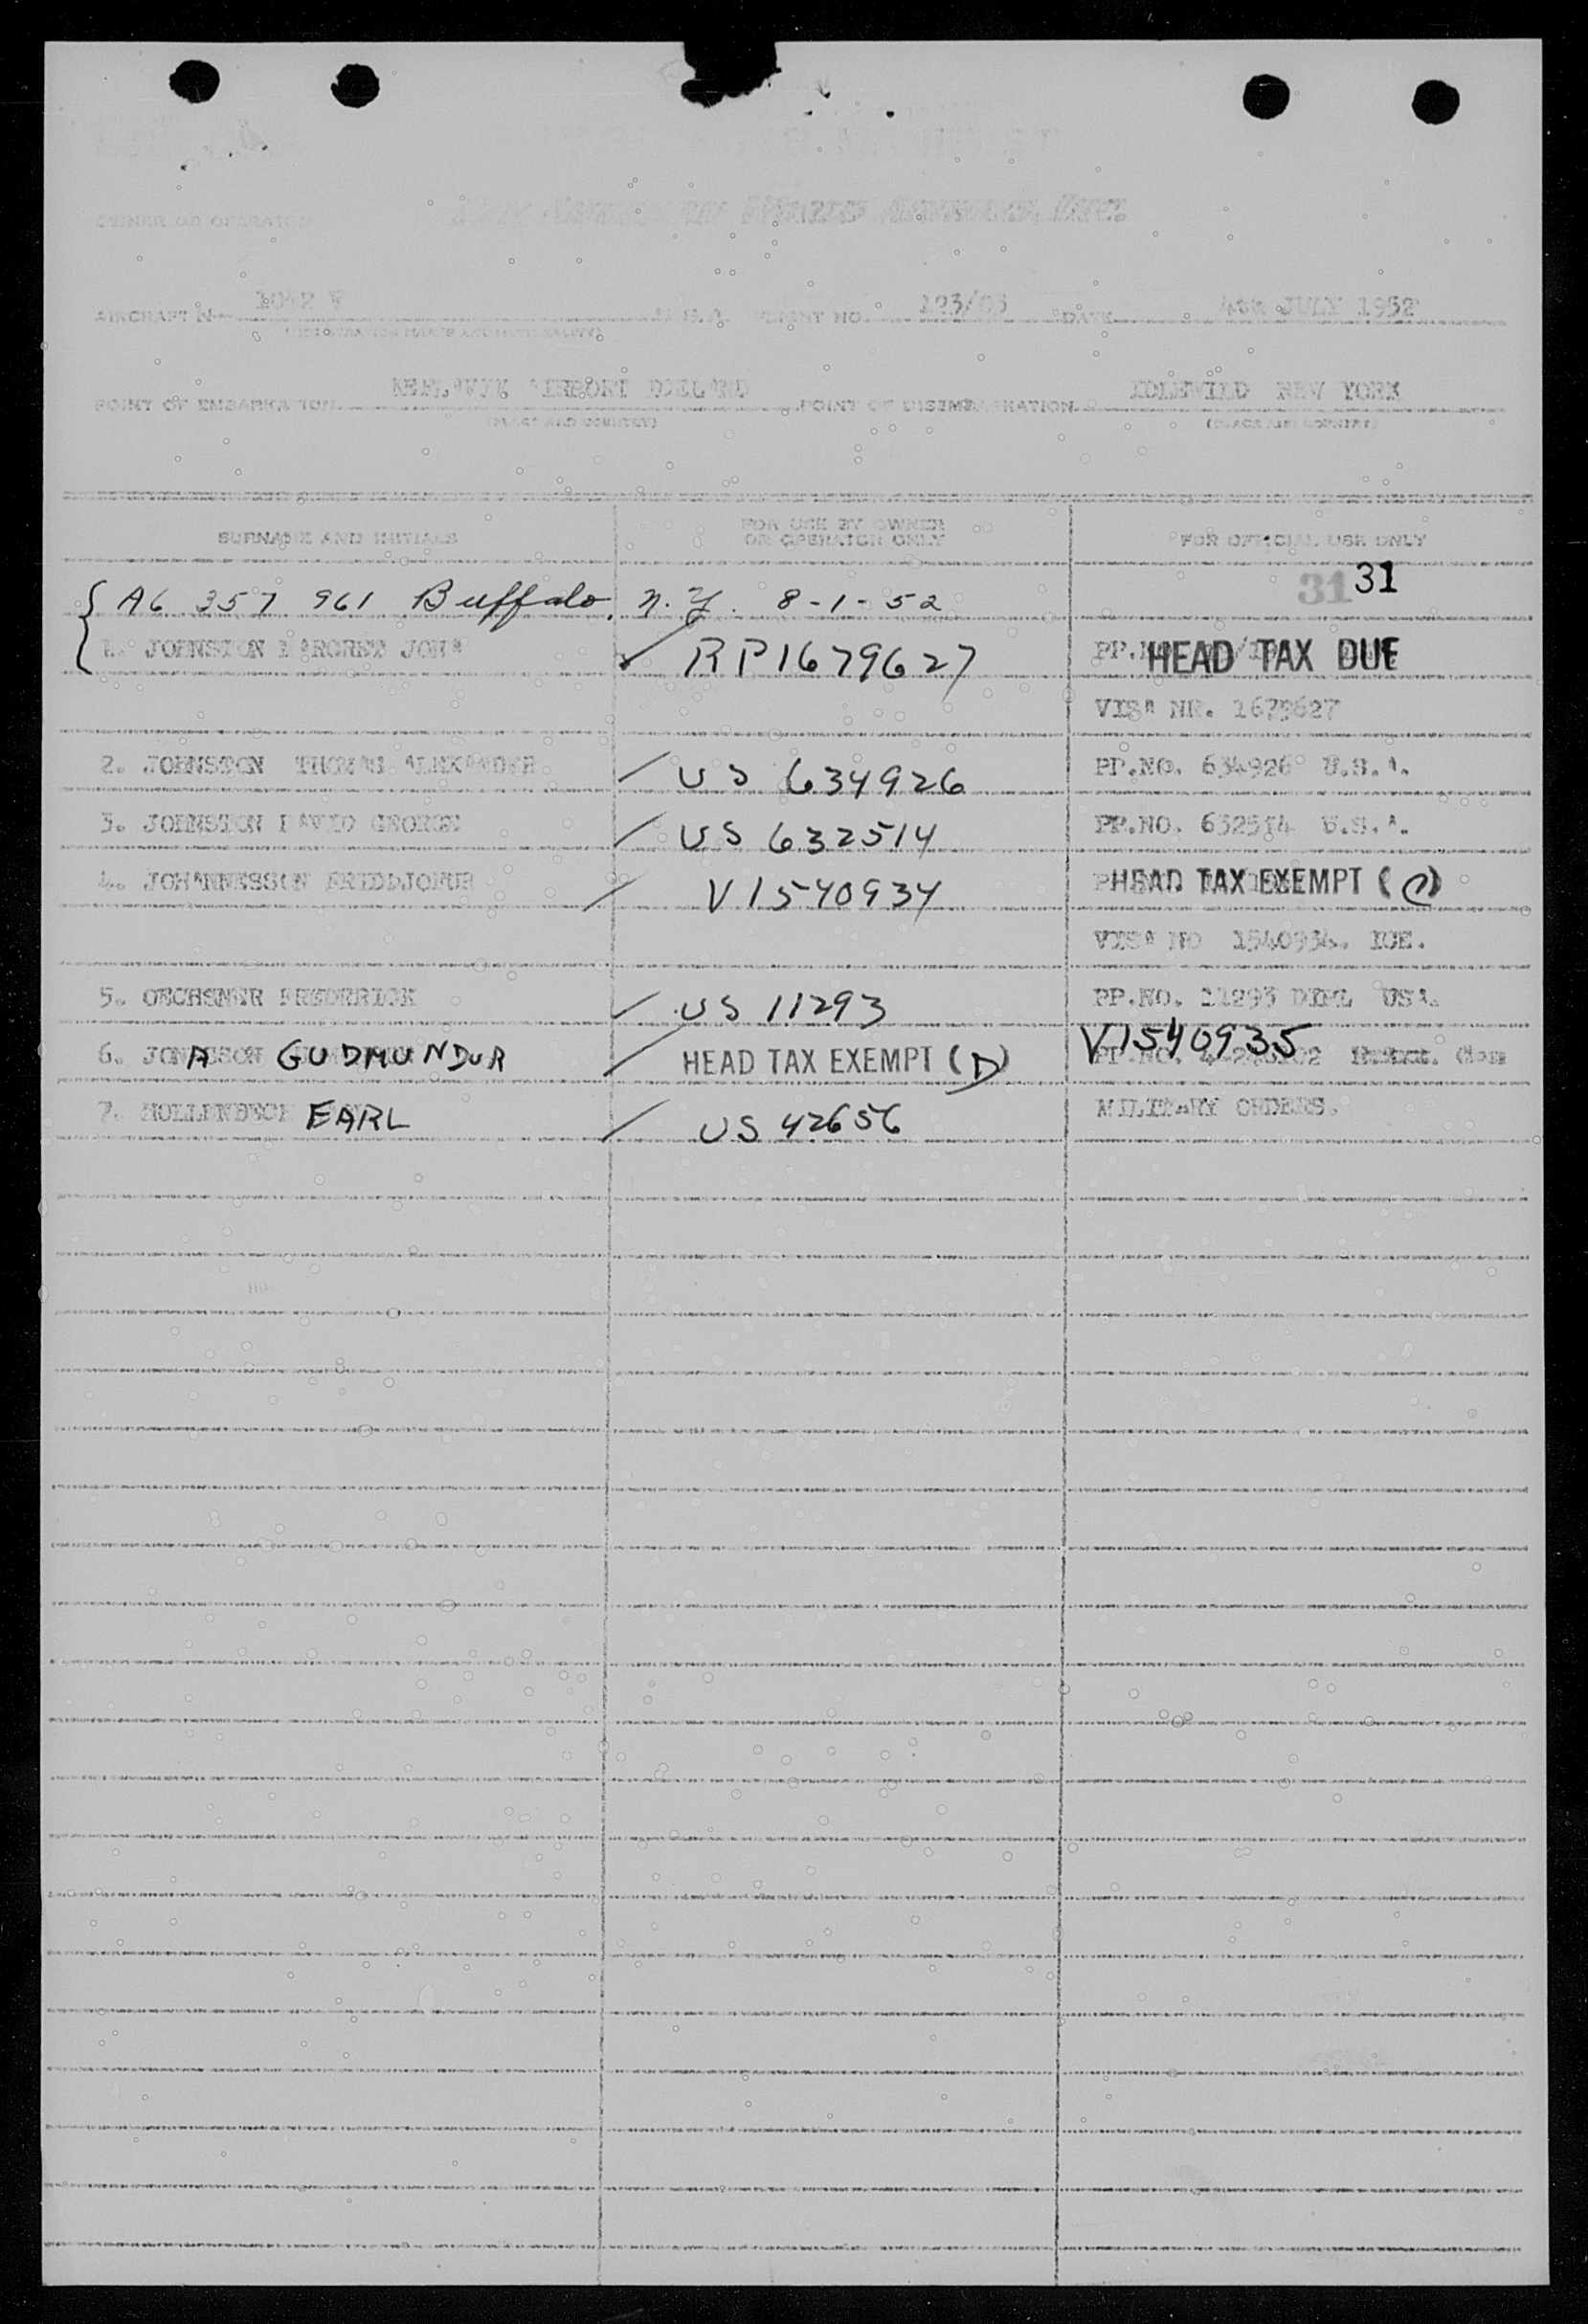 OWNER OR OPERATOR
AIRCRAFT FLIGHT NO. 123/03 DATE 4th JULY 1952
POINT OF EMBARKATION KEFLAVIK AIRPORT ICELAND POINT OF DISEMBARKATION IDLEWILD NEW YORK
(PLACE AND COUNTRY) (PLACE AND COUNTRY)
SURNAME AND INITIALS FOR USE BY OWNER OR OPERATOR ONLY FOR OFFICIAL USE ONLY
31 31
A6 357 961 Buffalo, N.Y. 8-1-52
1. JOHNSTON RP1679627 HEAD TAX DUE
VISA NR. 1679627
2. JOHNSTON THOMAS ALEXANDER US 634926 PP.NO. 634926 U.S.A.
3. JOHNSTON DAVID GEORGE US 632514 PP.NO. 632514 U.S.A.
4. JOHANNESSON FRIDDJOFUR V1540934 HEAD TAX EXEMPT (C)
VISA NO 1540934. ICE.
5. OECHSNER FREDERICK US 11293 PP.NO. 11293 DIPL USA.
6. GUDMUNDUR HEAD TAX EXEMPT (D) V1540935
7. EARL US 42656 MILITARY ORDERS.